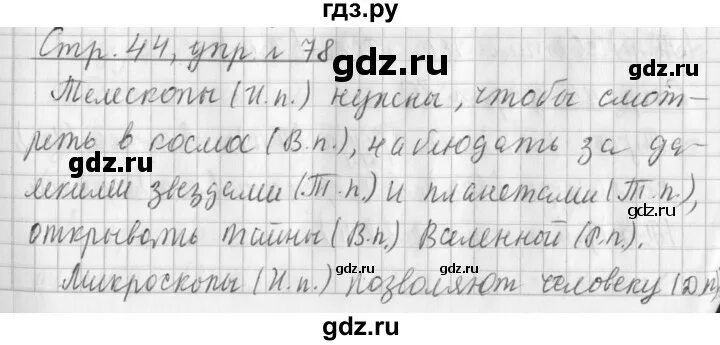 гдз.ру
Стр. 44, упр. 78
gdz.ru gdz.ru
Телескопы (И.п.) нужны, чтобы смот-
реть в космос (В.п.), наблюдать за да-
gdz.ru
лекими звездами (Т.п.) и планетами (Т.п.),
gdz.ru
открывать тайны (В.п.) Вселенной (Р.п.).
gdz.ru
Микроскопы (И.п.) позволяют человеку (Д.п.)
gdz.ru gdz.ru